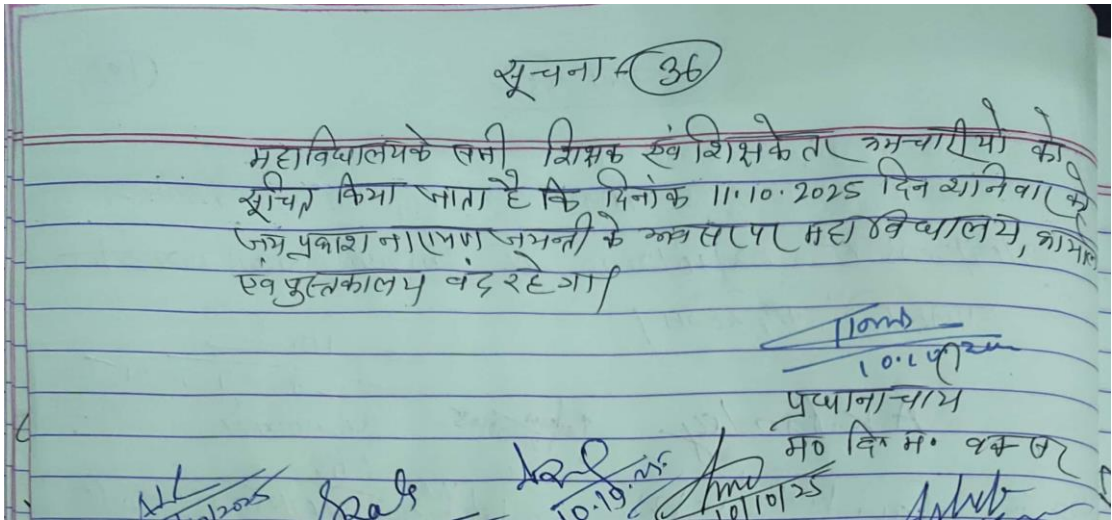 सूचना - 36
महाविद्यालय के सभी शिक्षक एवं शिक्षकेतर कमचारीयो को
सूचित किया जाता है कि दिनांक 11.10.2025 दिन शनिवार को
जय प्रकाश नारायण जयन्ती के अवसर पर महाविद्यालय, कार्यालय
एवं पुस्तकालय बंद रहेगा।
प्रधानाचार्य
म० वि० म० बक्सर
10/10/25